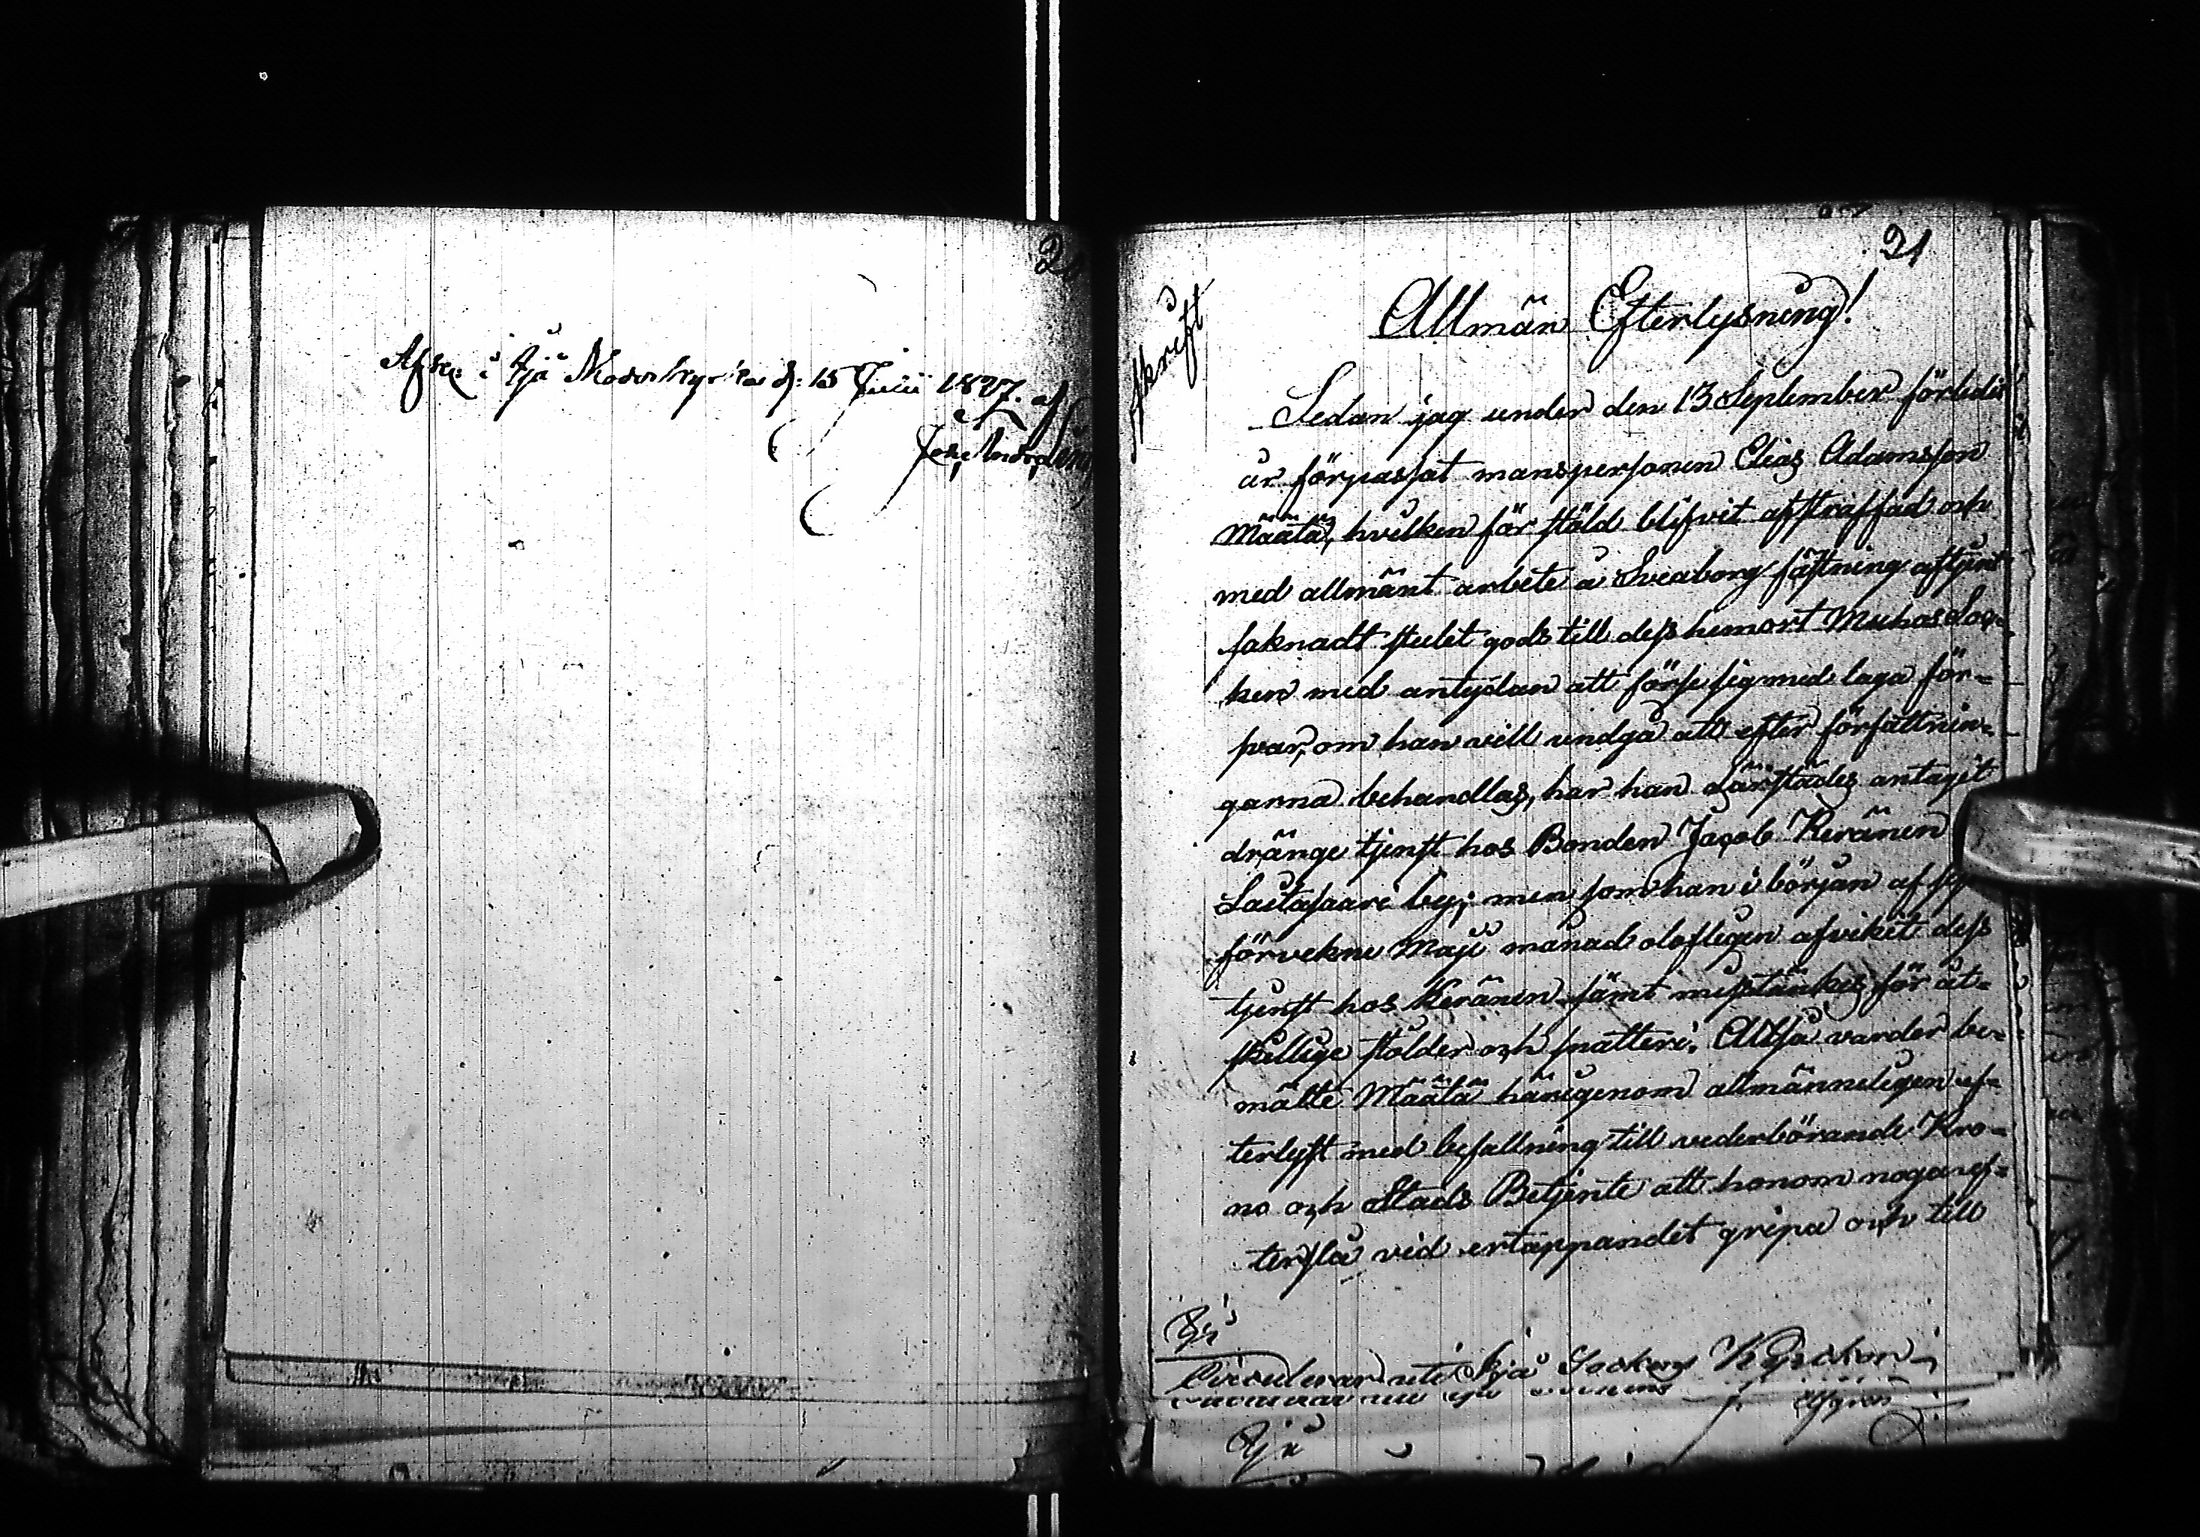 Afsk: i Ijå Moderkyrka d: 15 Julii 1827. af
21
Afskrift
Allmän Efterlysning!
Sedan jag under den 13 September förledit
år förpassat manspersonen Elias Adamsson
Määtä, hvilken för stöld blifvit afstraffad och
med allmänt arbete å Sveaborgs fästning aftjent
saknadt stulet gods till dess hemort Muhos Soc-
ken med antydan att förse sig med laga för-
svar, om han vill undgå att efter författnin-
garna behandlas, har han därstädes antagit
dränge tjenst hos Bonden Jacob Keränen
Laitasaari by; men som han i början af
förvekne Maji månad olofligen afvikit dess
tjenst hos Keränen, samt misstänkes för åt-
skillige stölder och snatteri; Altså varder be-
mälte Määtä härigenom allmänneligen ef-
terlyst med befallning till vederbörande Kro-
no och Stads Betjente att honom noga ef-
terslå vid ertappandet gripa och till
Ijå
Circulerar uti Ijå Sockens
Ijå